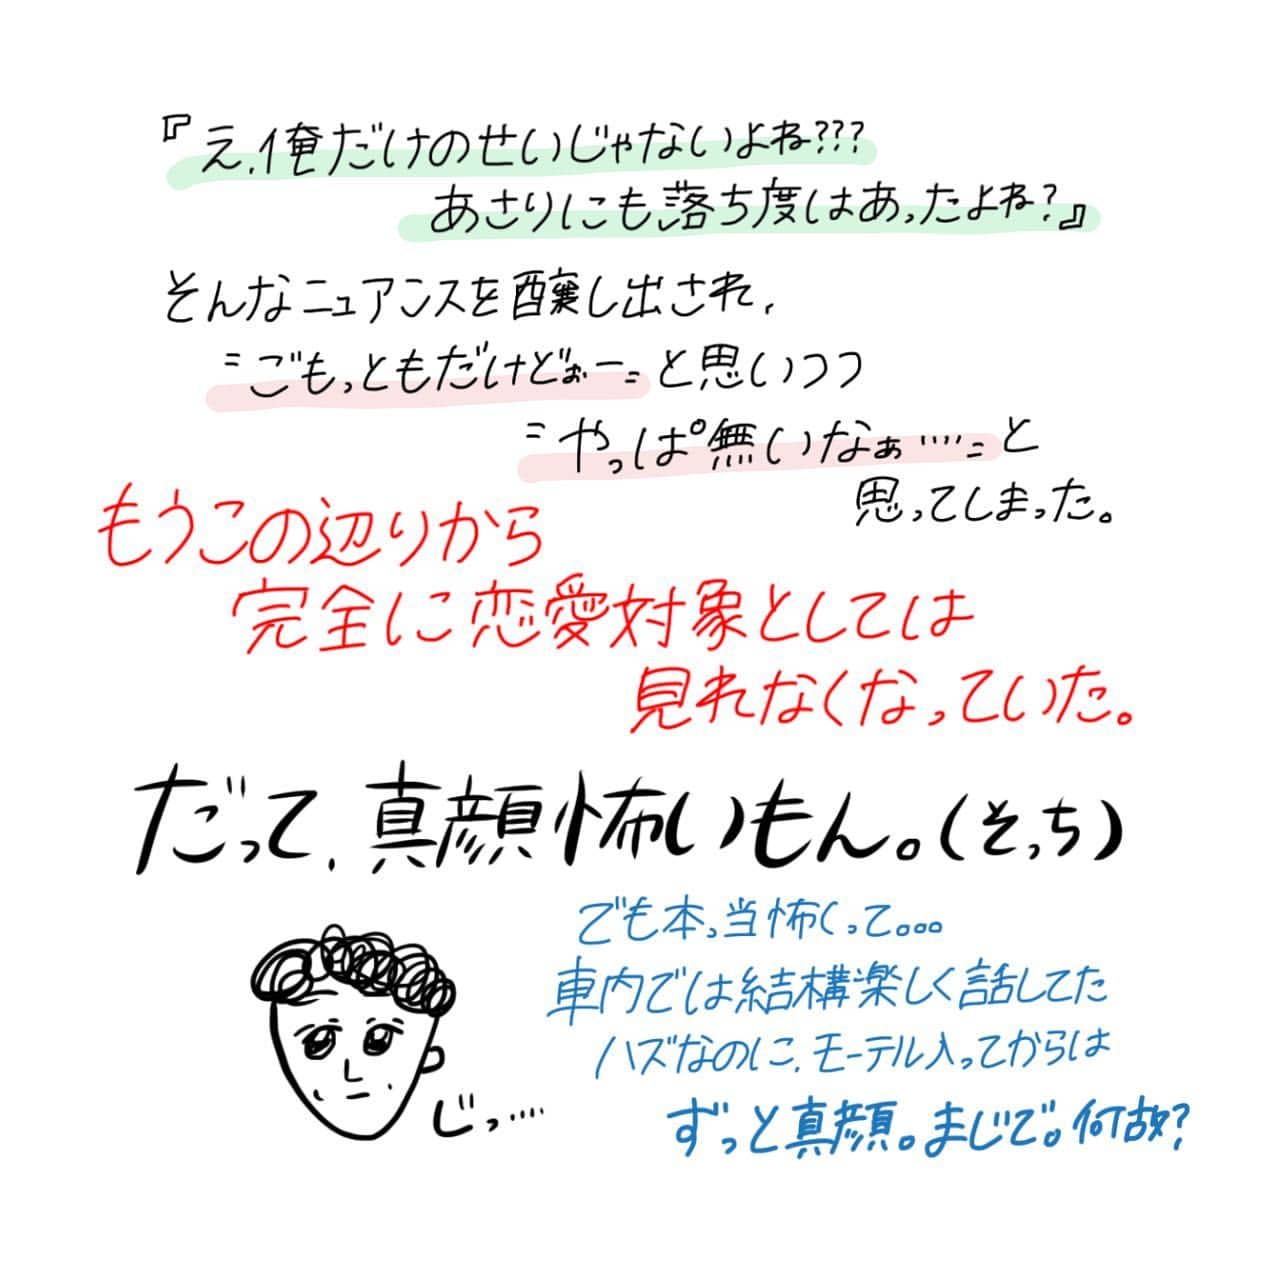 『え、俺だけのせいじゃないよね???
あさりにも落ち度はあったよね?』
そんなニュアンスを醸し出され、
〝ごもっともだけどぉー〟と思いつつ
〝やっぱ無いなぁ‥‥〟と
思ってしまった。
もうこの辺りから
完全に恋愛対象としては
見れなくなっていた。
だって、真顔怖いもん。(そっち)
でも本っ当怖くって。。。
車内では結構楽しく話してた
ハズなのに、モーテル入ってからは
ずっと真顔。まじで。何故?
じっ‥‥